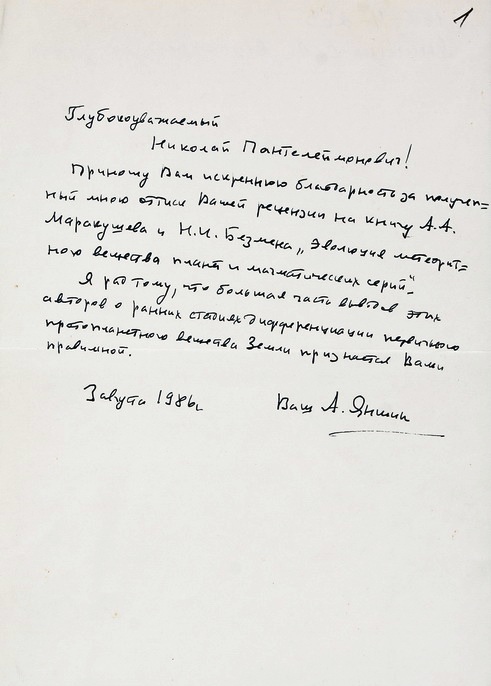 1
Глубокоуважаемый
Николай Пантелеймонович!
Приношу Вам искреннюю благодарность за получен=
ный мною оттиск Вашей рецензии на книгу А.А.
Маракушева и Н.И. Безмена „Эволюция метеорит=
ного вещества планет и магматических серий“.
Я рад тому, что большая часть выводов этих
авторов о ранних стадиях дифференциации первичного
протопланетного вещества Земли признается Вами
правильной.
3 августа 1986 г.
Ваш А. Яншин